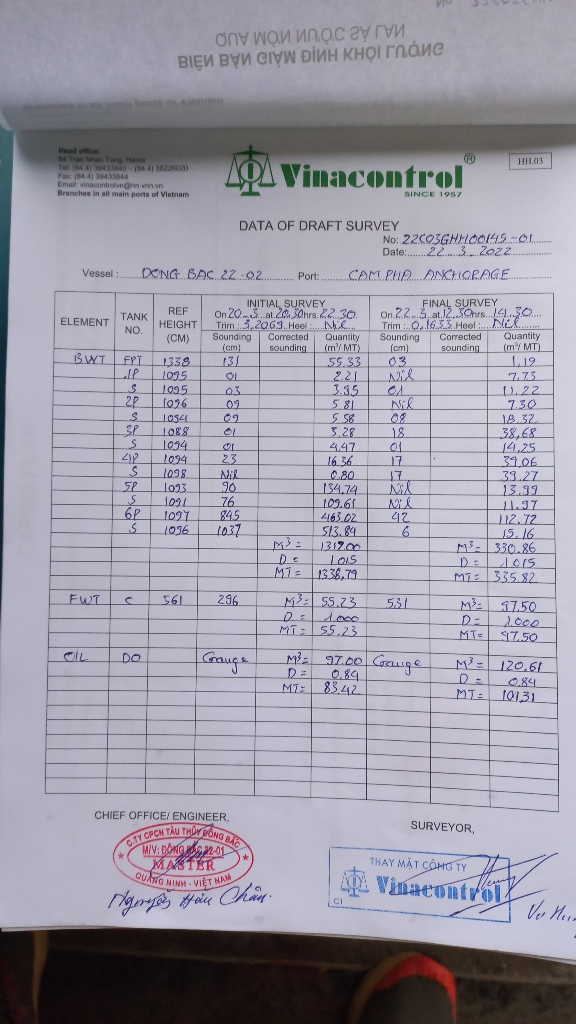 QUA MÓN NƯỚC SÀ LAN
BIÊN BẢN GIÁM ĐỊNH KHỐI LƯỢNG
Head office:
54 Tran Nhan Tong, Hanoi
Tel: (84.4) 39433840 - (84.4) 38226020
Fax: (84.4) 39433844
Email: vinacontrolvn@hn.vnn.vn
Branches in all main ports of Vietnam
Vinacontrol ®
SINCE 1957
HH.03
DATA OF DRAFT SURVEY
No: 22G03GHH00145-01
Date: 22.3.2022
Vessel: DONG BAC 22-02 Port: CAM PHA ANCHORAGE
ELEMENT TANK NO. REF HEIGHT (CM) INITIAL SURVEY FINAL SURVEY
On 20-3 at 20.30 hrs. 22.30 On 22.3 at 12.30 hrs. 14.30
Trim: 3,2069 Heel: Nil Trim: 0,1633 Heel: Nil
Sounding (cm) Corrected sounding Quantity (m³/ MT) Sounding (cm) Corrected sounding Quantity (m³/ MT)
BWT FPT 1338 131 55.33 03 1,19
1P 1095 01 2.21 Nil 7.73
S 1095 03 3.95 01 11.22
2P 1096 09 5.81 Nil 7.30
S 1094 09 5.58 08 18.32
3P 1088 01 3.28 18 38,68
S 1094 01 4.47 01 14,25
4P 1094 23 16.36 17 39,06
S 1098 Nil 0.80 17 39.27
5P 1093 90 134.74 Nil 13.99
S 1091 76 109.61 Nil 11.97
6P 1097 845 463.02 42 112.72
S 1096 1037 513.84 6 15.16
M³= 1319.00 M³= 330.86
D = 1.015 D = 1.015
MT= 1338,79 MT= 335.82
FWT C 561 296 M³= 55.23 531 M³= 97.50
D = 1.000 D = 1.000
MT= 55.23 MT= 97.50
OIL DO Gauge M³= 97.00 Gauge M³= 120.61
D = 0.84 D = 0.84
MT= 83.42 MT= 101,31
CHIEF OFFICE/ ENGINEER, SURVEYOR,
C.TY CPCN TÀU THỦY ĐÔNG BẮC
M/V: ĐÔNG BẮC 22-01
MASTER
QUẢNG NINH - VIỆT NAM
Nguyễn Hữu Chân
THAY MẶT CÔNG TY
Vinacontrol
CI